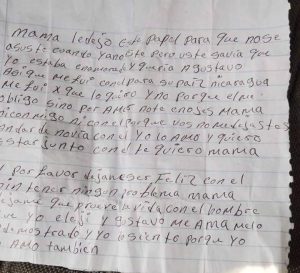 mama le dejo este papel para que no se
asuste cuando ya no este pero uste savia que
yo estaba enamorada y queria a Gustavo
Asi que me fui con el para su pais nicaragua
me fui x que lo quiero y no porque el me
obligo sino por AmoR no te enojes mama
ni conmigo ni con el porque vos no me dejastes
andar de novia con el Yo lo AMO y quiero
estar junto con el te quiero mama
por favor dejanos ser Feliz con el
sin tener ningun problema mama
dejame que pruebe la vida con el hombre
que yo eleji y Gustavo me AMA me lo
demostrado y yo lo siento porque yo
lo AMO tambien